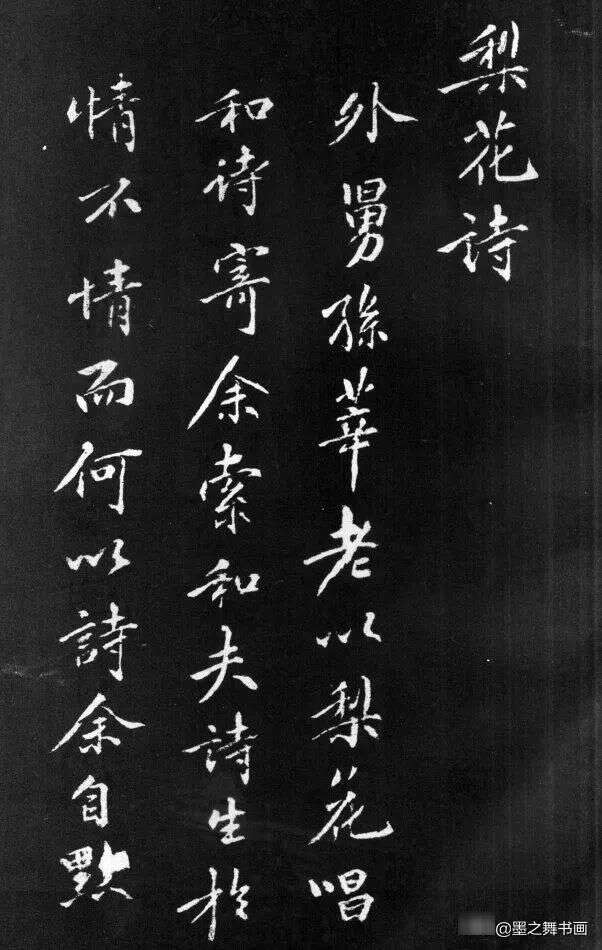 梨花詩
外舅孫莘老以梨花唱
和詩寄余索和夫詩生於
情不情而何以詩余自點
@墨之舞书画